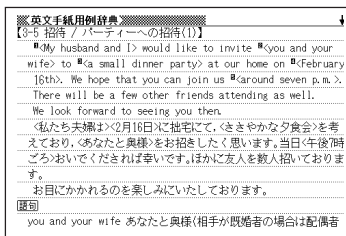 英文手紙用例辞典
【3-5 招待 / パーティーへの招待(1)】
<My husband and I> would like to invite <you and your
wife> to <a small dinner party> at our home on <February
16th>. We hope that you can join us <around seven p.m.>.
There will be a few other friends attending as well.
We look forward to seeing you then.
<私たち夫婦は><2月16日>に拙宅にて，<ささやかな夕食会>を考
えており，<あなたと奥様>をお招きしたく思います。当日<午後7時
ごろ>おいでくだされば幸いです。ほかに友人を数人招いておりま
す。
お目にかかれるのを楽しみにいたしております。
語句
you and your wife あなたと奥様(相手が既婚者の場合は配偶者